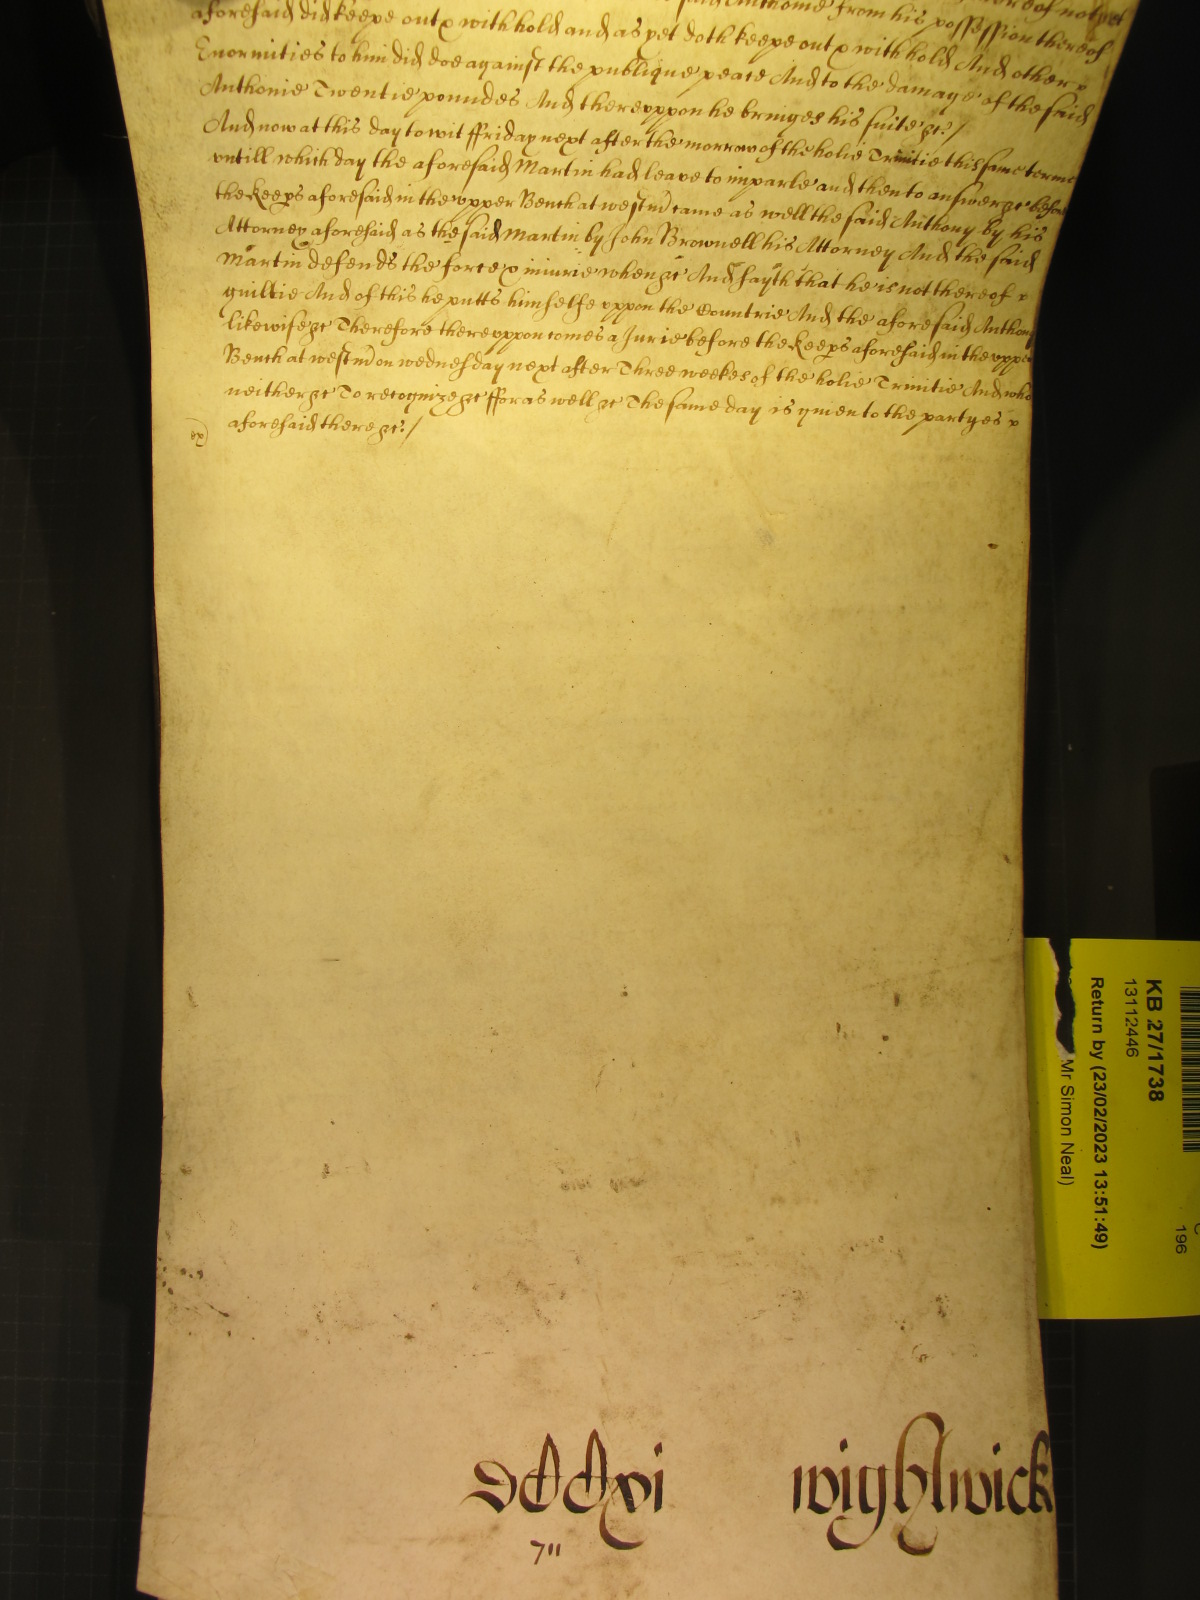 said Anthonie from his possession thereof
aforesaid did keepe out & with hold and as yet doth keepe out & with hold And other
Enormities to him did doe against the publique peace And to the damage of the said
Anthonie Twentie poundes And thereuppon he bringes his suite &c /
And now at this day to wit ffriday next after the morrow of the holie Trinitie this same terme
vntill which day the aforesaid Martin had leave to imparle and then to answere &c before
the Keeps aforesaid in the vpper Bench at westm came as well the said Anthony by his
Attorney aforesaid as the said Martin by John Brownell his Attorney And the said
Martin defends the force & iniurie when &c And sayth that he is not thereof
guiltie And of this he putts himselfe vppon the Countrie And the aforesaid Anthony
likewise &c Therefore thereuppon comes a Jurie before the Keeps aforesaid in the vpper
Bench at westm on wednesday next after Three weekes of the holie Trinitie And who
neither &c To recognize &c ffor as well &c The same day is given to the partyes
aforesaid there &c /
KB 27/1738
13112446
Return by (23/02/2023 13:51:49)
Mr Simon Neal)
196
DCCxi wightwick
711